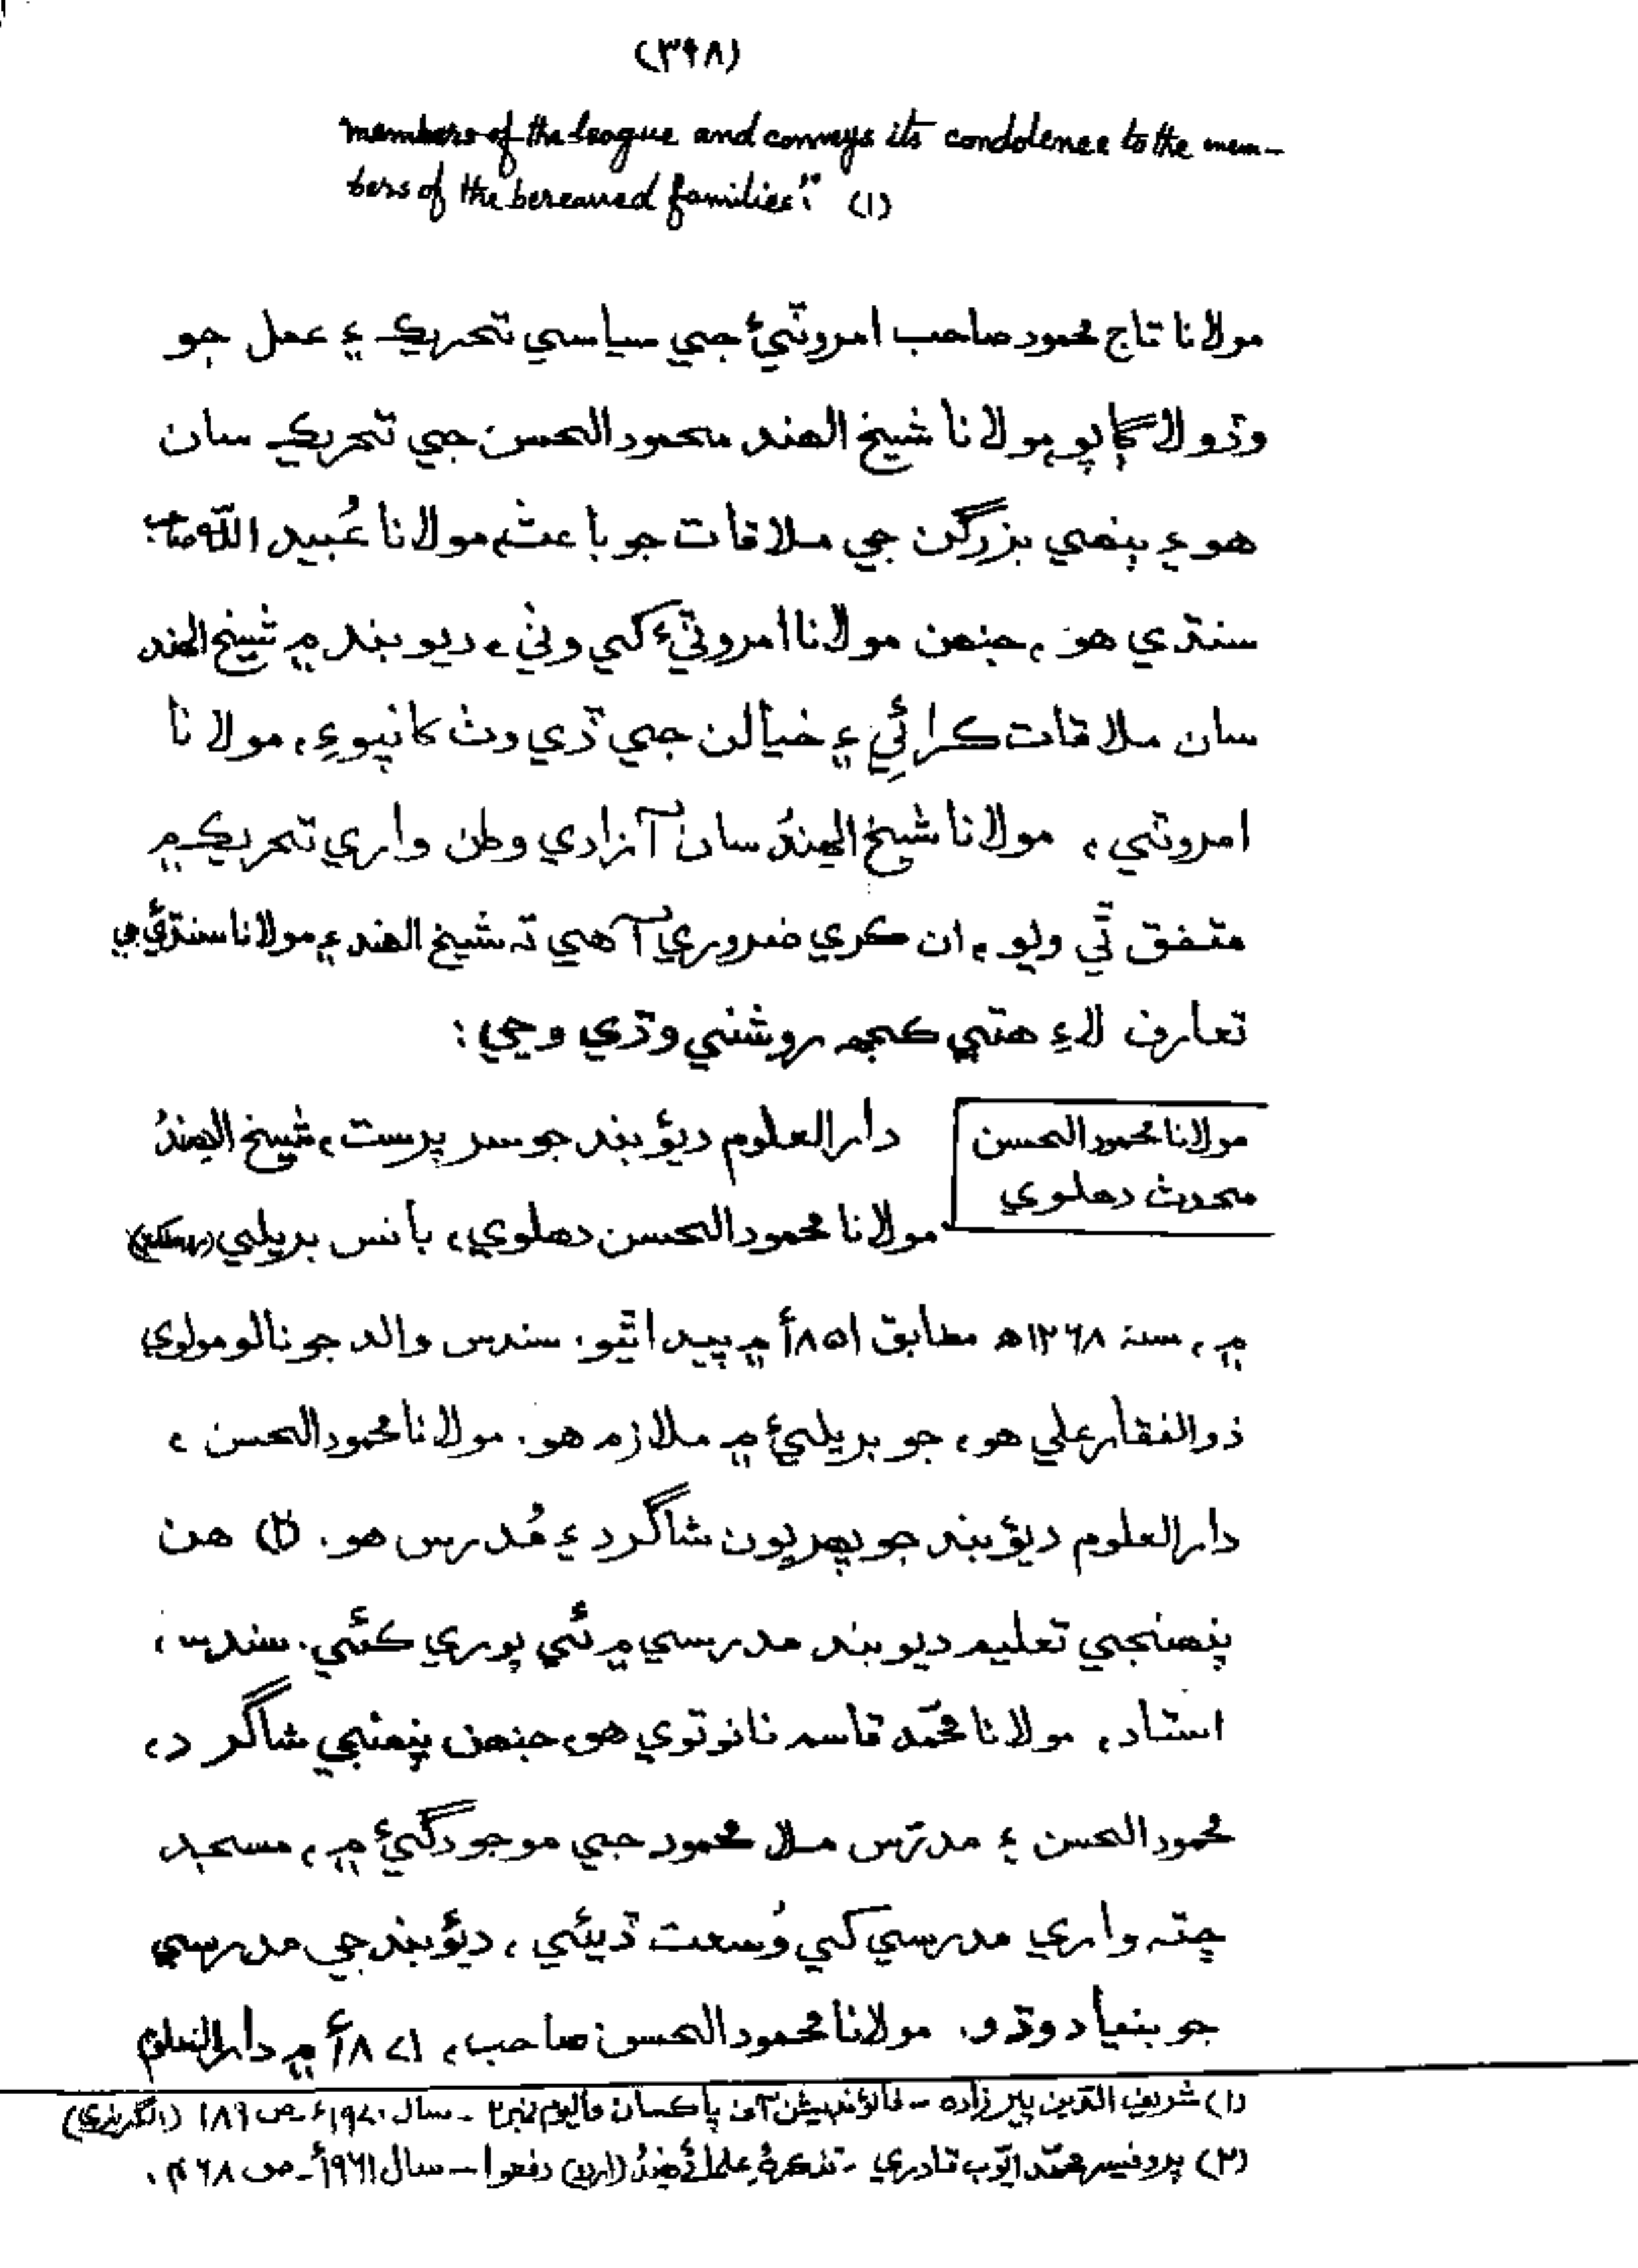 (٣٩٨)
members of the league and conveys its condolence to the mem-
bers of the bereaved families." (1)
مولانا تاج محمود صاحب امروٽيءَ جي سياسي تحريڪ ۽ عمل جو
وڏو لاڳاپو، مولانا شيخ الهند محمود الحسن جي تحريڪ سان
هو ۽ ٻنهي بزرگن جي ملاقات جو باعث، مولانا عُبيد الله صاحب
سنڌي هو، جنهن مولانا امروٽيءَ کي وٺي، ديوبند ۾ شيخ الهند
سان ملاقات ڪرائي ۽ خيالن جي ڏي وٺ کانپوءِ، مولانا
امروٽي، مولانا شيخ الهندؒ سان آزادي وطن واري تحريڪ ۾
متفق ٿي ويو، ان ڪري ضروري آهي تہ شيخ الهند ۽ مولانا سنڌيءَ جي
تعارف لاءِ هتي ڪجهہ روشني وڌي وڃي:
مولانا محمود الحسن
محدث دهلوي
دارالعلوم ديؤبند جو سرپرست، شيخ الهندؒ
مولانا محمود الحسن دهلوي، بانس بريلي
۾، سنه ١٢٦٨ھ مطابق ١٨٥١ع ۾ پيدا ٿيو. سندس والد جو نالو مولوي
ذوالفقار علي هو، جو بريليءَ ۾ ملازم هو. مولانا محمود الحسن،
دارالعلوم ديؤبند جو پهريون شاگرد ۽ مُدرس هو. (٢) هن
پنهنجي تعليم ديوبند مدرسي ۾ ئي پوري ڪئي. سندس،
استاد، مولانا محمّد قاسم نانوتوي هو، جنهن پنهنجي شاگرد،
محمود الحسن ۽ مدرّس ملا محمود جي موجودگيءَ ۾، مسجد
ڇتہ واري مدرسي کي وُسعت ڏيئي، ديؤبند جي مدرسي
جو بنياد وڌو. مولانا محمود الحسن صاحب، ١٨٧١ع ۾ دارالعلوم
(١) شريف الدّين پيرزاده – فائونڊيشن آف پاڪستان واليوم نمبر ٢ – سال ١٩٧٠ع – ص ١٨٦ (انگريزي)
(٢) پروفيسر محمّد ايّوب قادري – تذڪرۂ علمائے هندؒ (اردو) دفعو ١ – سال ١٩٦١ع – ص ٤٦٨.